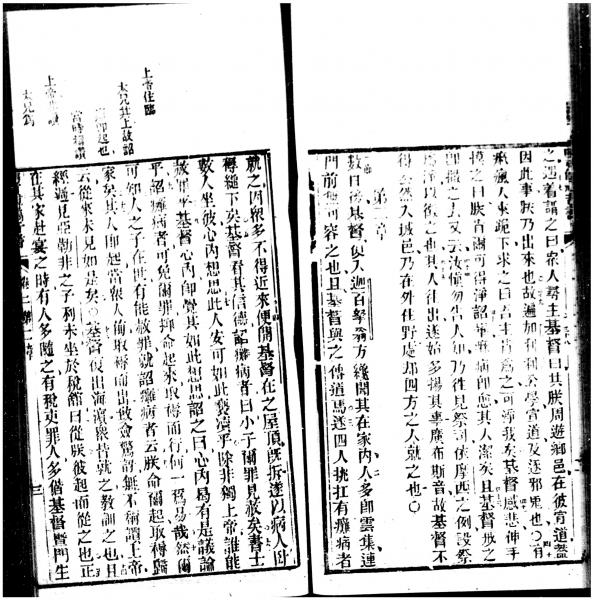 之遇着謂之曰眾人尋主基督曰其朕周遊鄉邑在彼宣道蓋
因此事朕乃出來也故遍加利利公學宣道及逐邪鬼也○有
癩瘋人來跪下求之曰若主肯為之可淨我矣基督感悲伸手
摸之曰朕肯爾可得淨詔畢癩病即愈其人潔矣且基督戒之
即撤之去又云汝慎勿告人知乃往見祭司依摩西之例設祭
為淨以徵之也其人往出遂始多揚其事廣布斯音故基督不
得公然入城邑乃在外住野處却四方之人就之也○
第二章
數日後基督復入迦百拏翁方纔聞其在家內人多即雲集連
門前無可容之也且基督與之傳道焉遂四人挑扛有癱病者
上帝住臨
太兄其上故詔
卽起也
當時稱讚
上帝讚
太兄焉
就之因眾多不得近來便開基督在之屋頂既拆遂以病人牀
褥縋下矣基督看其信德詔癱病者曰小子爾罪見赦矣書士
數人坐彼心內想思此人安可如此褻瀆乎除非獨上帝誰能
赦罪乎基督心內卽覺其如此想思詔之曰心內曷有是議論
乎詔癱病者可免爾罪抑命起來取褥而行何一為易哉然爾
可知人之子在世有能赦罪就詔癱病者云朕命爾起取褥歸
家矣其人即起當眾人面取褥而出致僉驚訝無不稱讚上帝
云從來未見如是矣○基督復出海濱眾皆就之教訓之也且
經過見亞勒非之子利未坐於稅館曰從朕彼起而從之也正
在其家赴宴之時有人多隨之有稅吏罪人多偕基督曁門生
三